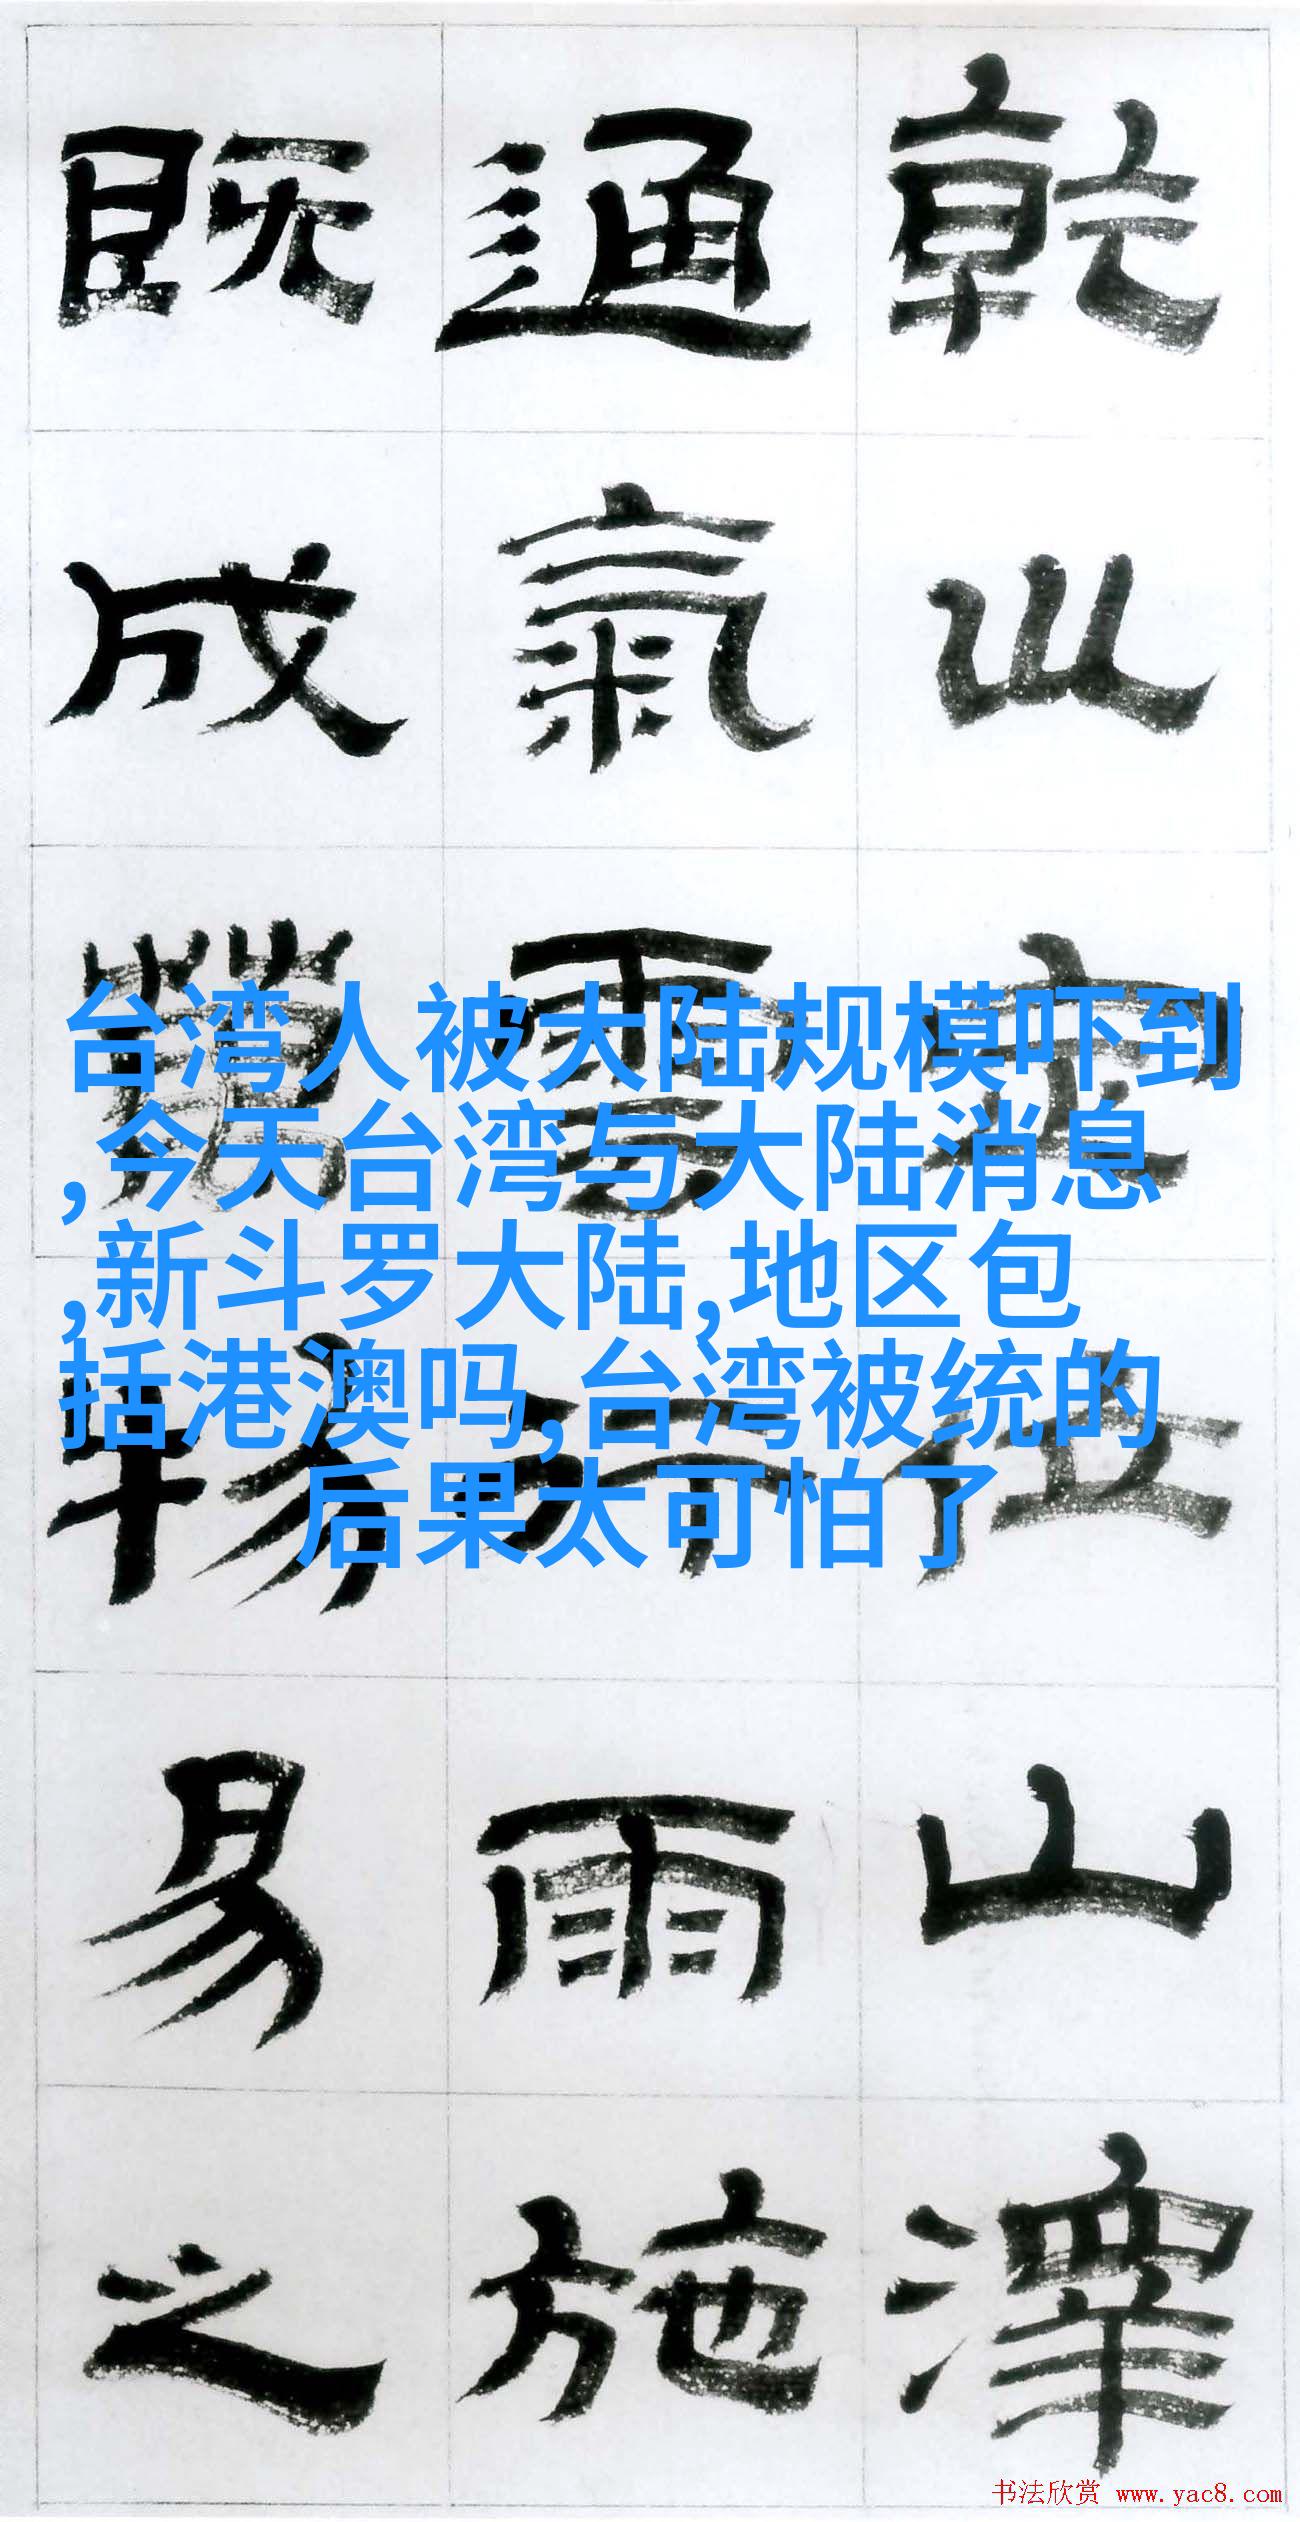 乾巛定位山澤
通氣雲行雨施
既成萬物易之
台湾人被大陆规模吓到
,今天台湾与大陆消息
,新斗罗大陆,地区包
括港澳吗,台湾被统的
后果太可怕了
书法欣赏 www.yac8.com